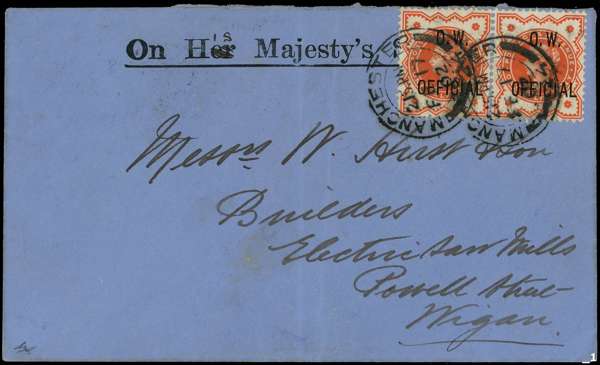 On His Majesty's
O.W. OFFICIAL
O.W. OFFICIAL
MANCHESTER
MANCHESTER
Messrs W. Hurst & Son
Builders
Electric Saw Mills
Powell Street
Wigan.
_1